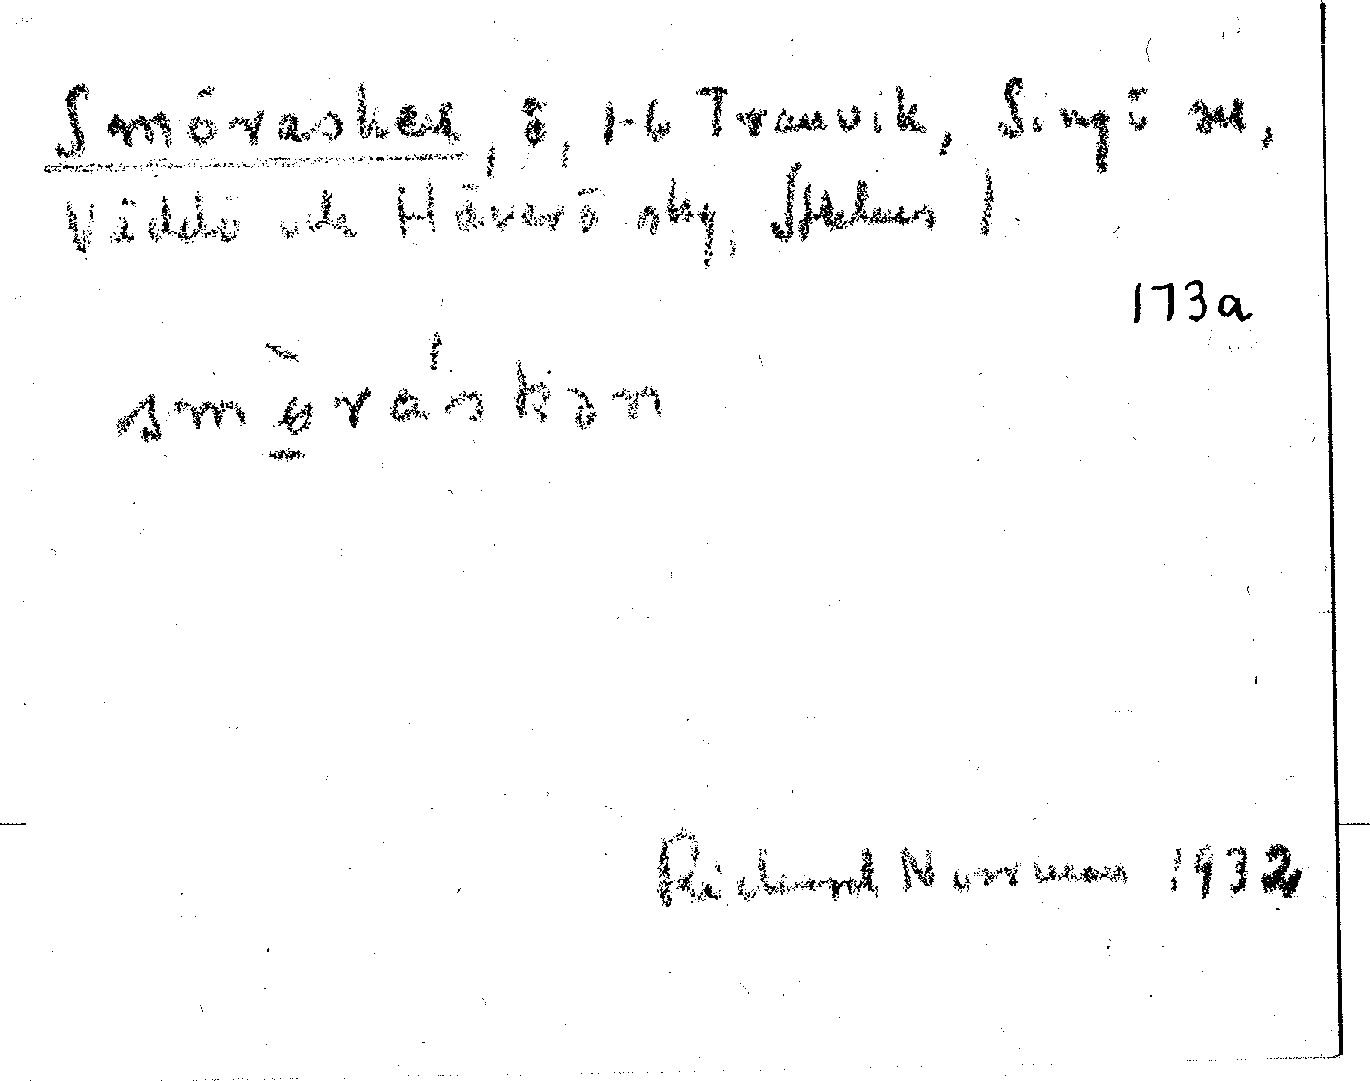 Smörasken, ö, 1-6 Tranvik, Singö sn,
Väddö och Häverö skg, Sthlms l.
173a
smö̀rás kən
Richard Norrman 1932